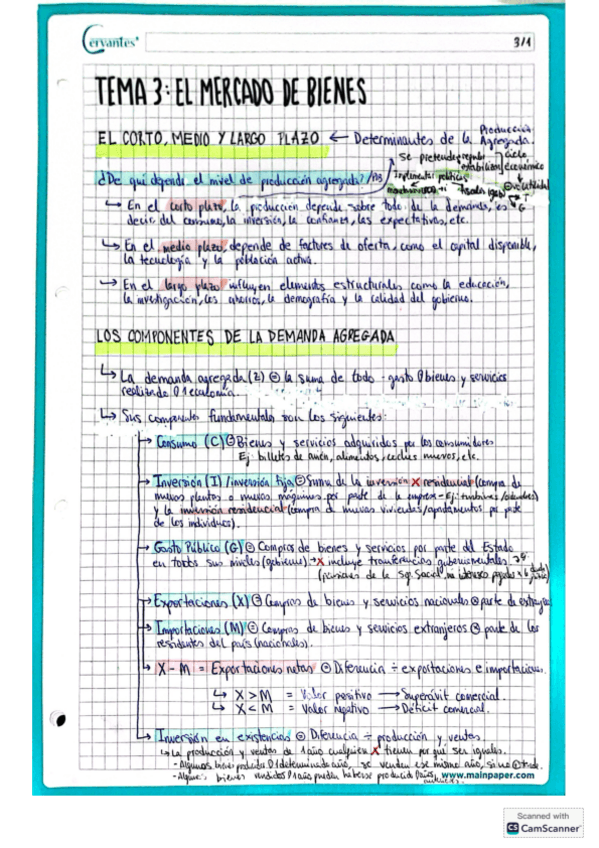 Cervantes
3/1
TEMA 3: EL MERCADO DE BIENES
EL CORTO, MEDIO Y LARGO PLAZO ← Determinantes de la Producción Agregada.
se pretende
ciclo económico
¿De qué depende el nivel de producción agregada?
Implementar políticas
↳ En el corto plazo, la producción depende sobre todo de la demanda, es
decir del consumo, la inversión, la confianza, las expectativas, etc.
↳ En el medio plazo, depende de factores de oferta, como el capital disponible,
la tecnología y la población activa.
↳ En el largo plazo influyen elementos estructurales como la educación,
la investigación, los ahorros, la demografía y la calidad del gobierno.
LOS COMPONENTES DE LA DEMANDA AGREGADA
↳ La demanda agregada (Z) la suma de todo gasto bienes y servicios
realizado 1 economía.
↳ Sus componentes fundamentales son los siguientes:
Consumo (C) Bienes y servicios adquiridos por los consumidores
Ej: billetes de avión, alimentos, coches nuevos, etc.
Inversión (I) /inversión fija Suma de la inversión X residencial (compra de
nuevas plantas o nuevas máquinas por parte de la empresa - Ej: turbinas
y la inversión residencial (compra de nuevas viviendas/apartamentos por parte
de los individuos).
Gasto Público (G) Compras de bienes y servicios por parte del Estado
en todos sus niveles (gobierno) → X incluye transferencias gubernamentales
(pensiones de la Sg. Social, ni intereses pagados x
Exportaciones (X) Compras de bienes y servicios nacionales parte de extranj
Importaciones (M) Compras de bienes y servicios extranjeros parte de los
residentes del país (nacionales).
X - M = Exportaciones netas Diferencia ÷ exportaciones e importaciones.
↳ X > M = Valor positivo → Superávit comercial.
↳ X < M = Valor negativo → Déficit comercial.
Inversión en existencias Diferencia ÷ producción y ventas.
↳ La producción y ventas de 1 año cualquiera X tienen por qué ser iguales.
- Algunos bienes producidos 1 determinado año, se venden ese mismo año, sino
- Algunos bienes vendidos 1 año pueden haberse producido
www.mainpaper.com
Scanned with
CS CamScanner